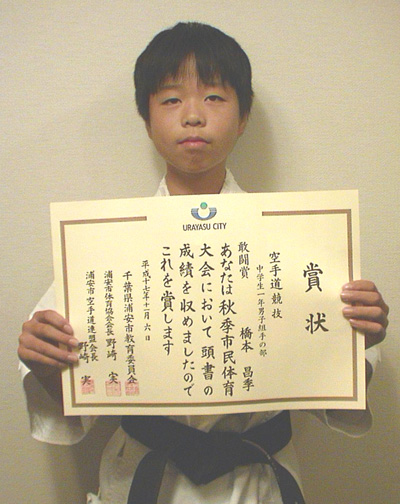 URAYASU CITY
賞状
空手道競技
中学生一年男子組手の部
敢闘賞
橋本 昌季
あなたは秋季市民体育
大会において頭書の
成績を収めましたので
これを賞します
平成十七年十一月六日
千葉県浦安市教育委員会
浦安市体育協会会長 野崎 実
浦安市空手道連盟会長 野崎 実